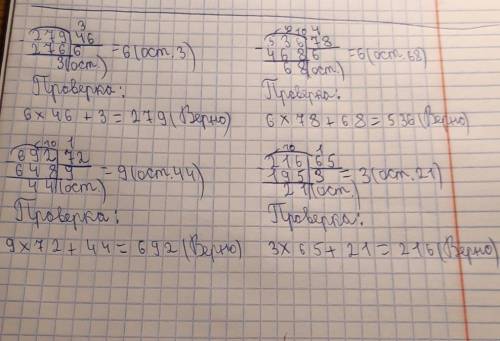 3
279 46
276 6 = 6 (ост. 3)
3 (ост.)
Проверка:
6 × 46 + 3 = 279 (Верно)
10 4
536 78
468 6 = 6 (ост. 68)
68 (ост.)
Проверка:
6 × 78 + 68 = 536 (Верно)
10 1
692 72
648 9 = 9 (ост. 44)
44 (ост.)
Проверка:
9 × 72 + 44 = 692 (Верно)
10 1
216 65
195 3 = 3 (ост. 21)
21 (ост.)
Проверка:
3 × 65 + 21 = 216 (Верно)